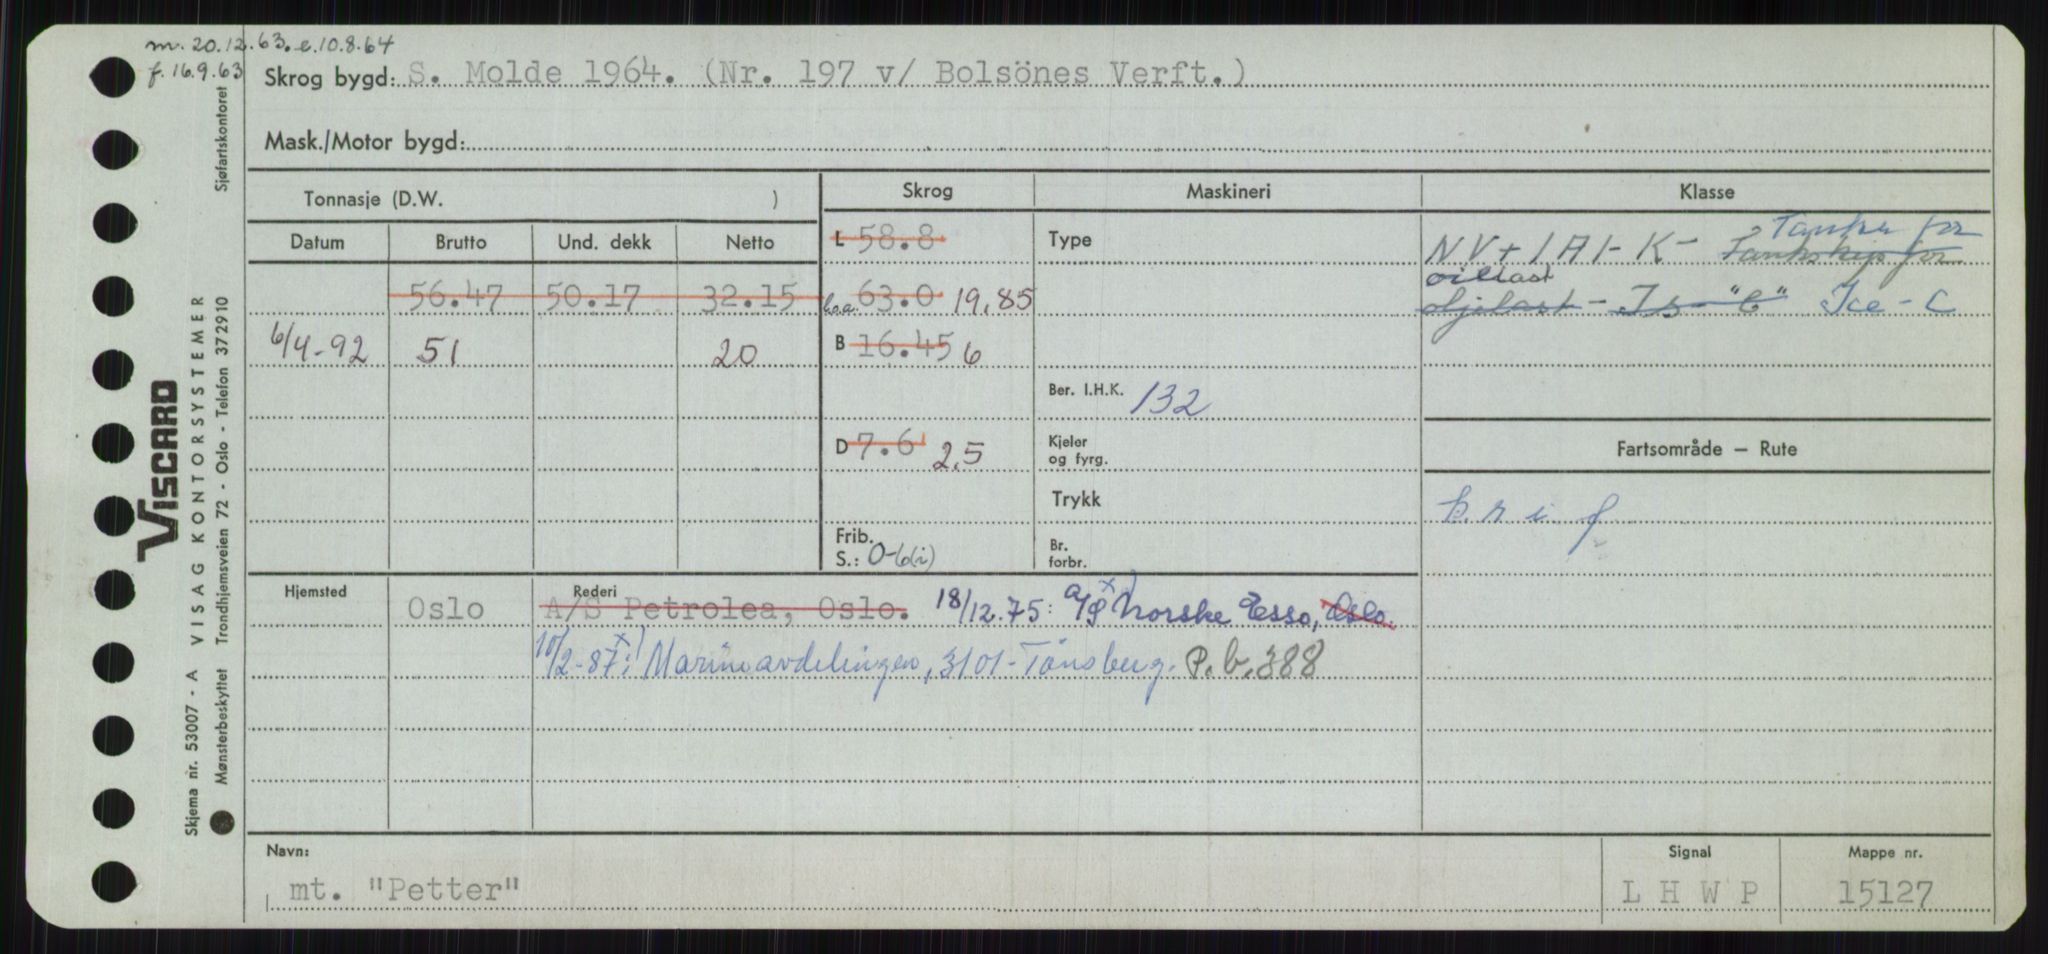 m. 20.12.63. e. 10.8.64
f. 16.9.63
Skrog bygd: S. Molde 1964. (Nr. 197 v/ Bolsönes Verft.)
Mask./Motor bygd:
Tonnasje (D.W. )
Skrog Maskineri Klasse
Datum Brutto Und. dekk Netto
L 58.8' Type
NV+1A1-K- Tankskip for Tanker for
oljelast - Is-"C" oillast Ice-C
56.47 50.17 32.15 l.o.a. 63.0 19,85
6/4-92 51 20 B 16.45 6
Ber. I.H.K. 132
D 7.6' 2,5 Kjeler og fyrg.
Fartsområde – Rute
Trykk
Frib. S.: 0-6(i) Br. forbr.
Hjemsted Rederi
Oslo A/S Petrolea, Oslo. 18/12.75: A/S x) Norske Esso, Oslo.
10/2-87: x) Marineavdelingen, 3101-Tønsberg. P.b. 388
Navn: Signal Mappe nr.
mt. "Petter" L H W P 15127
VISCARD
Skjema nr. 53007 - A VISAG KONTORSYSTEMER
Mønsterbeskyttet Trondhjemsveien 72 - Oslo - Telefon 372910 Sjøfartskontoret